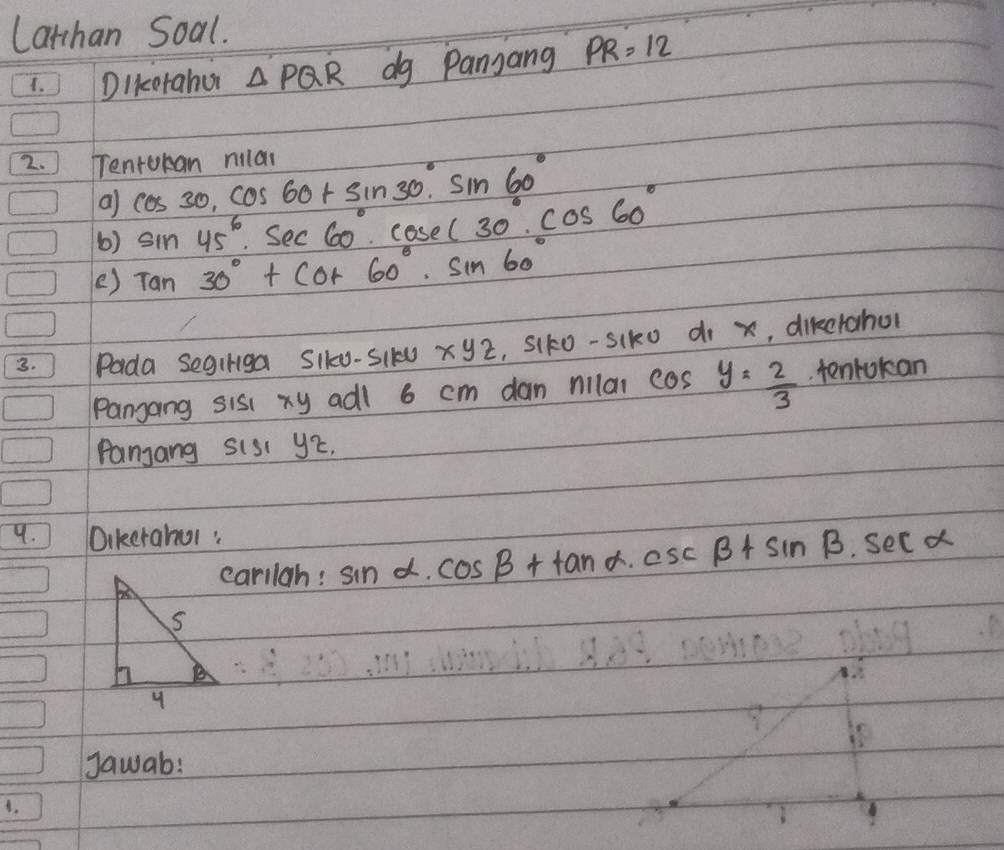 Latihan Soal.
1. Diketahui Δ PQR dg Panjang PR = 12
2. Tentukan nilai
a) cos 30, cos 60 + sin 30°. sin 60°
b) sin 45°. Sec 60°. cosec 30°. cos 60°
c) Tan 30° + Cot 60°. sin 60°
3. Pada segitiga siku-siku xyz, siko-siko di x, diketahui
Panjang sisi xy adl 6 cm dan nilai cos y = 2/3. tentukan
Panjang sisi yz.
4. Diketahui:
carilah: sin α. cos β + tan α. csc β + sin β. sec α
α
5
β
4
Jawab:
1.